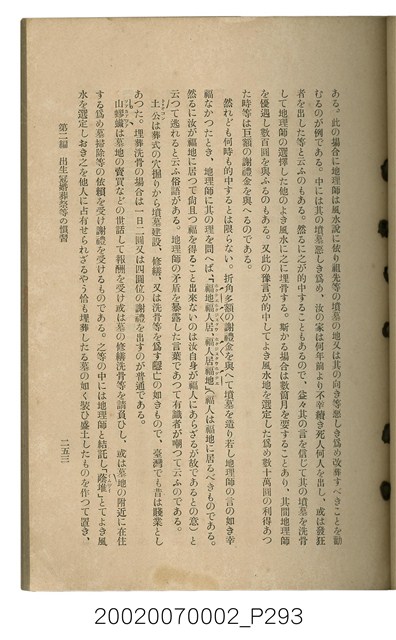 ある。此の場合に地理師は風水説に依り祖先等の墳墓の地又は其の向き等惡しき爲め改葬すべきことを勸
むるのが例である。中には其の墳墓惡しき爲め、汝の家は何年前より不幸續き死人何人を出し、或は發狂
者を出した等と云ふのもある。然るに之が的中することもあるので、益々其の言を信じて其の墳墓を洗骨
して地理師の選擇した他のよき風水に之に埋骨する。斯かる場合は數箇月を要することあり、其間地理師
を優遇し數百圓を與ふるのもある。又此の豫言が的中してよき風水地を選定した爲め數十萬圓の利得あつ
た時等は巨額の謝禮金を與へるのである。
然れども何時も的中するとは限らない。折角多額の謝禮金を與へて墳墓を造り若し地理師の言の如き幸
福なかつたとき、地理師に其の理を問へば、「福地福人居、福人居福地」（福人は福地に居るべきものである。
然るに汝が福地に居つて尙且つ福を得ること出來ないのは汝自身が福人にあらざるが故であるとの意）と
云つて逃れると云ふ俗語がある。地理師の矛盾を暴露した言葉であつて有識者が嘲つて云ふのである。
土公は葬式の穴掘りから墳墓建設、修繕、又は洗骨等を爲す隱亡の如きもので、臺灣でも昔は賤業とし
あつた。埋葬洗骨の場合は一日二圓又は四圓位の謝禮を出すのが普通である。
山膠蠘は墓地の賣買などの世話して報酬を受け或は墓の修繕洗骨等を請負ひし、或は墓地の附近に在住
する爲め墓掃除等の依賴を受け謝禮を受けるものである。之等の中には地理師と結託し「蔭堆」とてよき風
水を選定しおき之を他人に占有せられざるやう恰も埋葬したる墓の如く裝ひ盛土したものを作つて置き、
第二編　出生冠婚葬祭等の慣習
二五三
20020070002_P293